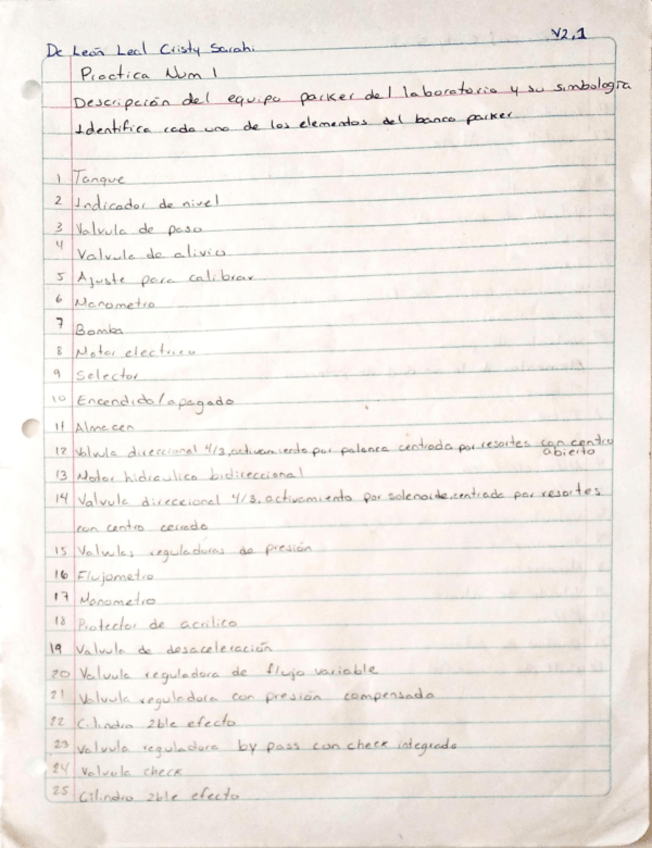 V2,1
De León Leal Cristy Sarahi
Practica Num 1
Descripción del equipo parker del laboratorio y su simbología
Identifica cada uno de los elementos del banco parker
1 Tanque
2 Indicador de nivel
3 Valvula de paso
4 Valvula de alivio
5 Ajuste para calibrar
6 Manometro
7 Bomba
8 Motor electrico
9 Selector
10 Encendido/apagado
11 Almacen
12 Valvula direccional 4/3, activamiento por palanca centrada por resortes con centro
abierto
13 Motor hidraulico bidireccional
14 Valvula direccional 4/3, activamiento por solenoide, centrada por resortes
con centro cerrado
15 Valvulas reguladoras de presión
16 Flujometro
17 Manometro
18 Protector de acrilico
19 Valvula de desaceleración
20 Valvula reguladora de flujo variable
21 Valvula reguladora con presión compensada
22 Cilindro 2ble efecto
23 Valvula reguladora by pass con check integrado
24 Valvula check
25 Cilindro 2ble efecto